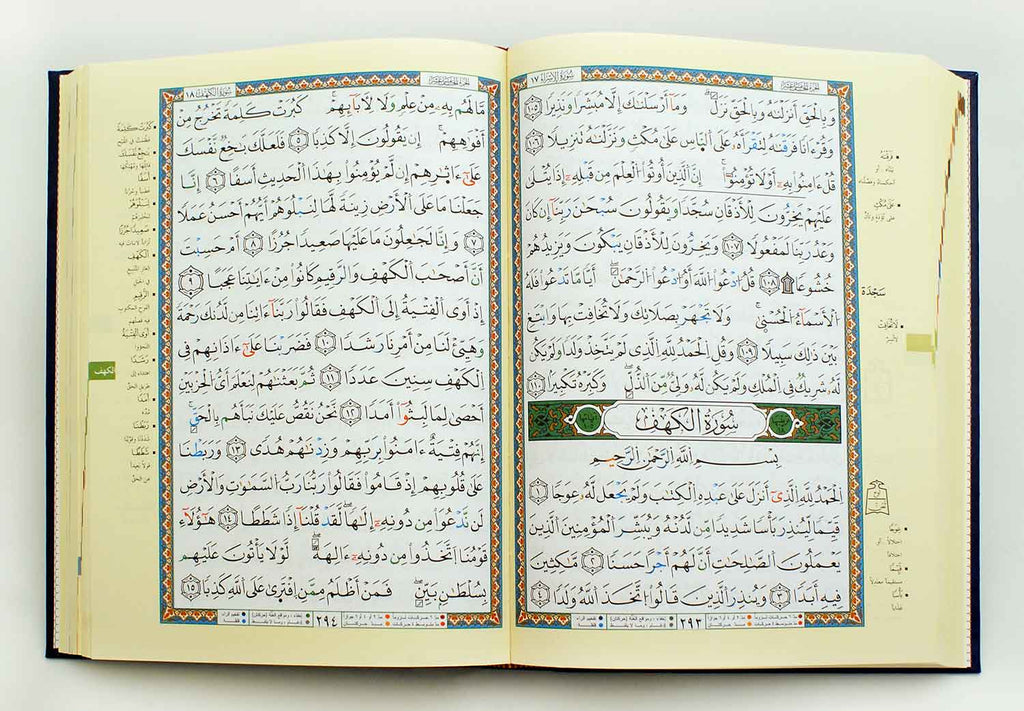 الجُزْءُ الخَامِسَ عَشَرَ سُورَةُ الإِسْرَاءِ ١٧
وَبِٱلْحَقِّ أَنزَلْنَٰهُ وَبِٱلْحَقِّ نَزَلَ ۗ وَمَآ أَرْسَلْنَٰكَ إِلَّا مُبَشِّرًا وَنَذِيرًا ١٠٥
وَقُرْءَانًا فَرَقْنَٰهُ لِتَقْرَأَهُۥ عَلَى ٱلنَّاسِ عَلَىٰ مُكْثٍ وَنَزَّلْنَٰهُ تَنزِيلًا ١٠٦
قُلْ ءَامِنُوا۟ بِهِۦٓ أَوْ لَا تُؤْمِنُوٓا۟ ۚ إِنَّ ٱلَّذِينَ أُوتُوا۟ ٱلْعِلْمَ مِن قَبْلِهِۦٓ إِذَا يُتْلَىٰ
عَلَيْهِمْ يَخِرُّونَ لِلْأَذْقَانِ سُجَّدًا وَيَقُولُونَ سُبْحَٰنَ رَبِّنَآ إِن كَانَ
وَعْدُ رَبِّنَا لَمَفْعُولًا ١٠٧ وَيَخِرُّونَ لِلْأَذْقَانِ يَبْكُونَ وَيَزِيدُهُمْ
خُشُوعًا ۩ ١٠٨ قُلِ ٱدْعُوا۟ ٱللَّهَ أَوِ ٱدْعُوا۟ ٱلرَّحْمَٰنَ ۖ أَيًّا مَّا تَدْعُوا۟ فَلَهُ
ٱلْأَسْمَآءُ ٱلْحُسْنَىٰ ۚ وَلَا تَجْهَرْ بِصَلَاتِكَ وَلَا تُخَافِتْ بِهَا وَٱبْتَغِ
بَيْنَ ذَٰلِكَ سَبِيلًا ١٠٩ وَقُلِ ٱلْحَمْدُ لِلَّهِ ٱلَّذِى لَمْ يَتَّخِذْ وَلَدًا وَلَمْ يَكُن
لَّهُۥ شَرِيكٌ فِى ٱلْمُلْكِ وَلَمْ يَكُن لَّهُۥ وَلِىٌّ مِّنَ ٱلذُّلِّ ۖ وَكَبِّرْهُ تَكْبِيرًا ١١٠
سُورَةُ الكَهْفِ
بِسْمِ ٱللَّهِ ٱلرَّحْمَٰنِ ٱلرَّحِيمِ
ٱلْحَمْدُ لِلَّهِ ٱلَّذِىٓ أَنزَلَ عَلَىٰ عَبْدِهِ ٱلْكِتَٰبَ وَلَمْ يَجْعَل لَّهُۥ عِوَجَا ١
قَيِّمًا لِّيُنذِرَ بَأْسًا شَدِيدًا مِّن لَّدُنْهُ وَيُبَشِّرَ ٱلْمُؤْمِنِينَ ٱلَّذِينَ
يَعْمَلُونَ ٱلصَّٰلِحَٰتِ أَنَّ لَهُمْ أَجْرًا حَسَنًا ٢ مَّٰكِثِينَ
فِيهِ أَبَدًا ٣ وَيُنذِرَ ٱلَّذِينَ قَالُوا۟ ٱتَّخَذَ ٱللَّهُ وَلَدًا ٤
٢٩٣
فَرَقْنَٰهُ
عَلَىٰ مُكْثٍ
سَجْدَة
لَا تُخَافِتْ
عِوَجًا
قَيِّمًا
بَأْسًا
الجُزْءُ الخَامِسَ عَشَرَ سُورَةُ الكَهْفِ ١٨
مَّا لَهُم بِهِۦ مِنْ عِلْمٍ وَلَا لِءَابَآئِهِمْ ۚ كَبُرَتْ كَلِمَةً تَخْرُجُ مِنْ
أَفْوَٰهِهِمْ ۚ إِن يَقُولُونَ إِلَّا كَذِبًا ٥ فَلَعَلَّكَ بَٰخِعٌ نَّفْسَكَ
عَلَىٰٓ ءَاثَٰرِهِمْ إِن لَّمْ يُؤْمِنُوا۟ بِهَٰذَا ٱلْحَدِيثِ أَسَفًا ٦ إِنَّا
جَعَلْنَا مَا عَلَى ٱلْأَرْضِ زِينَةً لَّهَا لِنَبْلُوَهُمْ أَيُّهُمْ أَحْسَنُ عَمَلًا
٧ وَإِنَّا لَجَٰعِلُونَ مَا عَلَيْهَا صَعِيدًا جُرُزًا ٨ أَمْ حَسِبْتَ
أَنَّ أَصْحَٰبَ ٱلْكَهْفِ وَٱلرَّقِيمِ كَانُوا۟ مِنْ ءَايَٰتِنَا عَجَبًا ٩
إِذْ أَوَى ٱلْفِتْيَةُ إِلَى ٱلْكَهْفِ فَقَالُوا۟ رَبَّنَآ ءَاتِنَا مِن لَّدُنكَ رَحْمَةً
وَهَيِّئْ لَنَا مِنْ أَمْرِنَا رَشَدًا ١٠ فَضَرَبْنَا عَلَىٰٓ ءَاذَانِهِمْ فِى
ٱلْكَهْفِ سِنِينَ عَدَدًا ١١ ثُمَّ بَعَثْنَٰهُمْ لِنَعْلَمَ أَىُّ ٱلْحِزْبَيْنِ
أَحْصَىٰ لِمَا لَبِثُوٓا۟ أَمَدًا ١٢ نَّحْنُ نَقُصُّ عَلَيْكَ نَبَأَهُم بِٱلْحَقِّ ۚ
إِنَّهُمْ فِتْيَةٌ ءَامَنُوا۟ بِرَبِّهِمْ وَزِدْنَٰهُمْ هُدًى ١٣ وَرَبَطْنَا
عَلَىٰ قُلُوبِهِمْ إِذْ قَامُوا۟ فَقَالُوا۟ رَبُّنَا رَبُّ ٱلسَّمَٰوَٰتِ وَٱلْأَرْضِ
لَن نَّدْعُوَا۟ مِن دُونِهِۦٓ إِلَٰهًا ۖ لَّقَدْ قُلْنَآ إِذًا شَطَطًا ١٤ هَٰٓؤُلَآءِ
قَوْمُنَا ٱتَّخَذُوا۟ مِن دُونِهِۦٓ ءَالِهَةً ۖ لَّوْلَا يَأْتُونَ عَلَيْهِم
بِسُلْطَٰنٍۭ بَيِّنٍ ۖ فَمَنْ أَظْلَمُ مِمَّنِ ٱفْتَرَىٰ عَلَى ٱللَّهِ كَذِبًا ١٥
٢٩٤
كَبُرَتْ كَلِمَةً
بَٰخِعٌ نَّفْسَكَ
أَسَفًا
لِنَبْلُوَهُمْ
صَعِيدًا جُرُزًا
ٱلْكَهْفِ
الرَّقِيمِ
أَوَى ٱلْفِتْيَةُ
رَشَدًا
الكهف
أَمَدًا
رَبَطْنَا
شَطَطًا